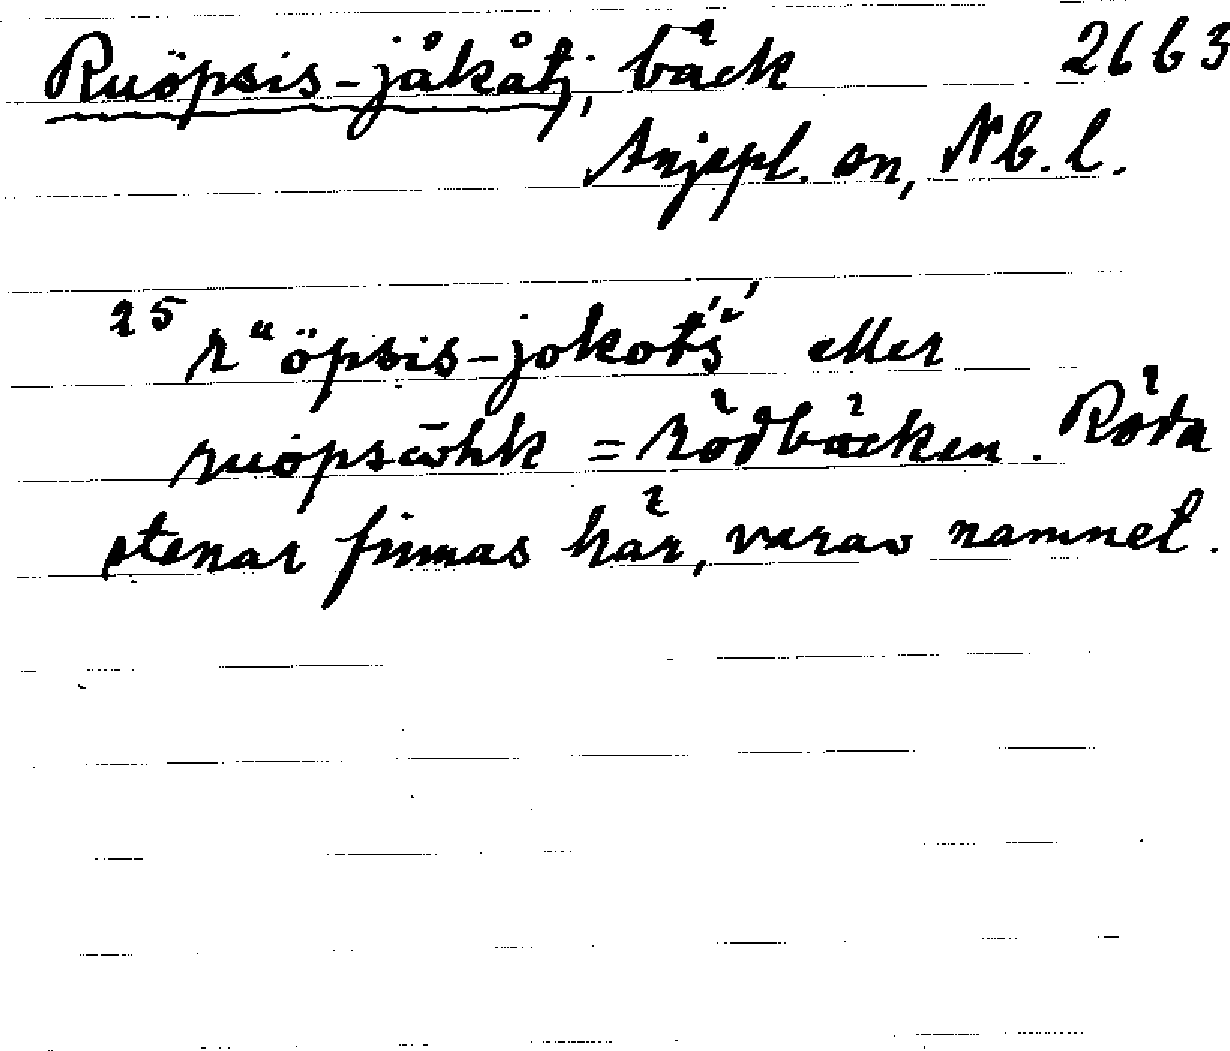 Ruöpsis-jåkåtj, bäck 2663
Arjepl. sn, Nb. l.
25 rᵘöpsis-jokot́ś eller
ruöpsɷ̄hk = rödbäcken. Röda
stenar finnas här, varav namnet.